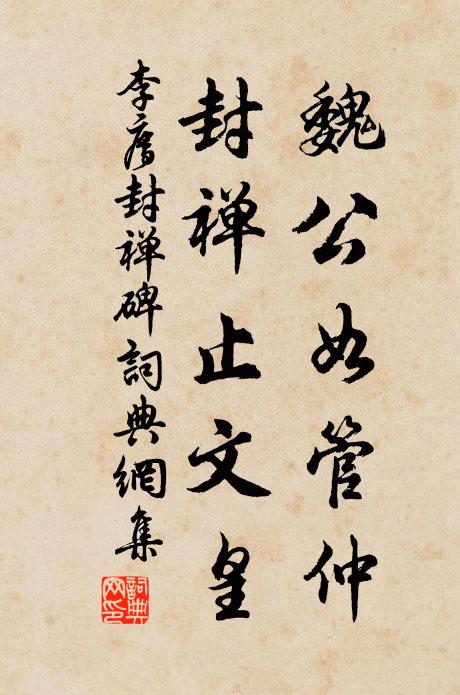 魏公如管仲
封禅止文皇
李廌封禅碑詞典網集
詞典
网印